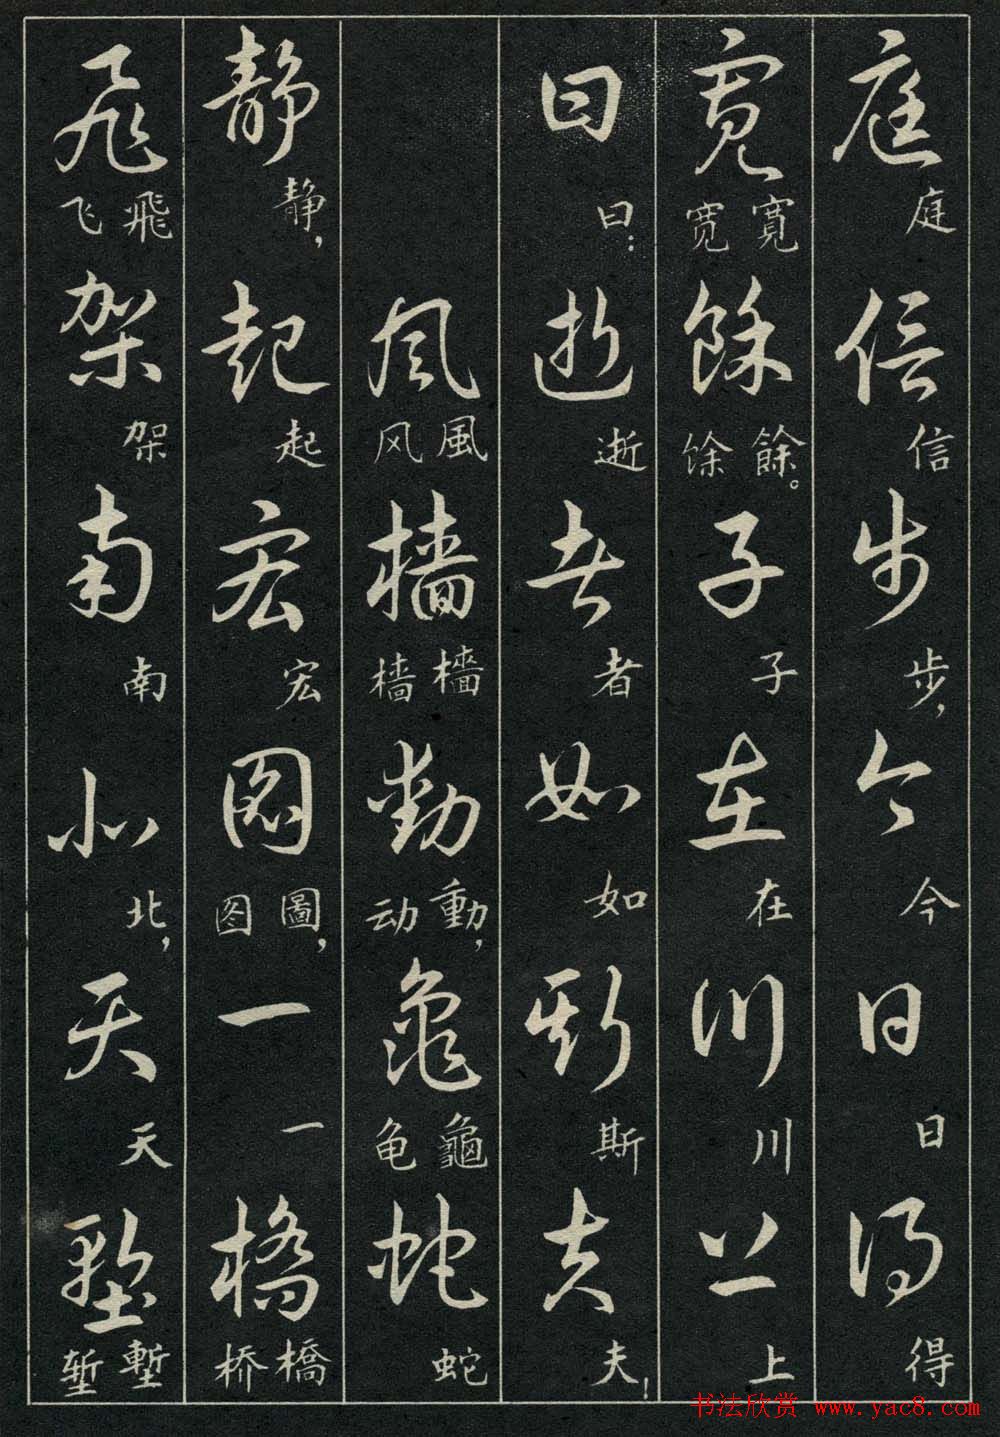 庭 庭 信 信 步 步, 今 今 日 日 得 得
寬 寬 宽 餘 餘。 馀 子 子 在 在 川 川 上 上
曰 曰: 逝 逝 者 者 如 如 斯 斯 夫 夫!
風 風 风 檣 檣 樯 動 動, 动 龜 龜 龟 蛇 蛇
静 静, 起 起 宏 宏 圖 圖, 图 一 一 橋 橋 桥
飛 飛 飞 架 架 南 南 北 北, 天 天 塹 塹 堑
书法欣赏 www.yac8.com